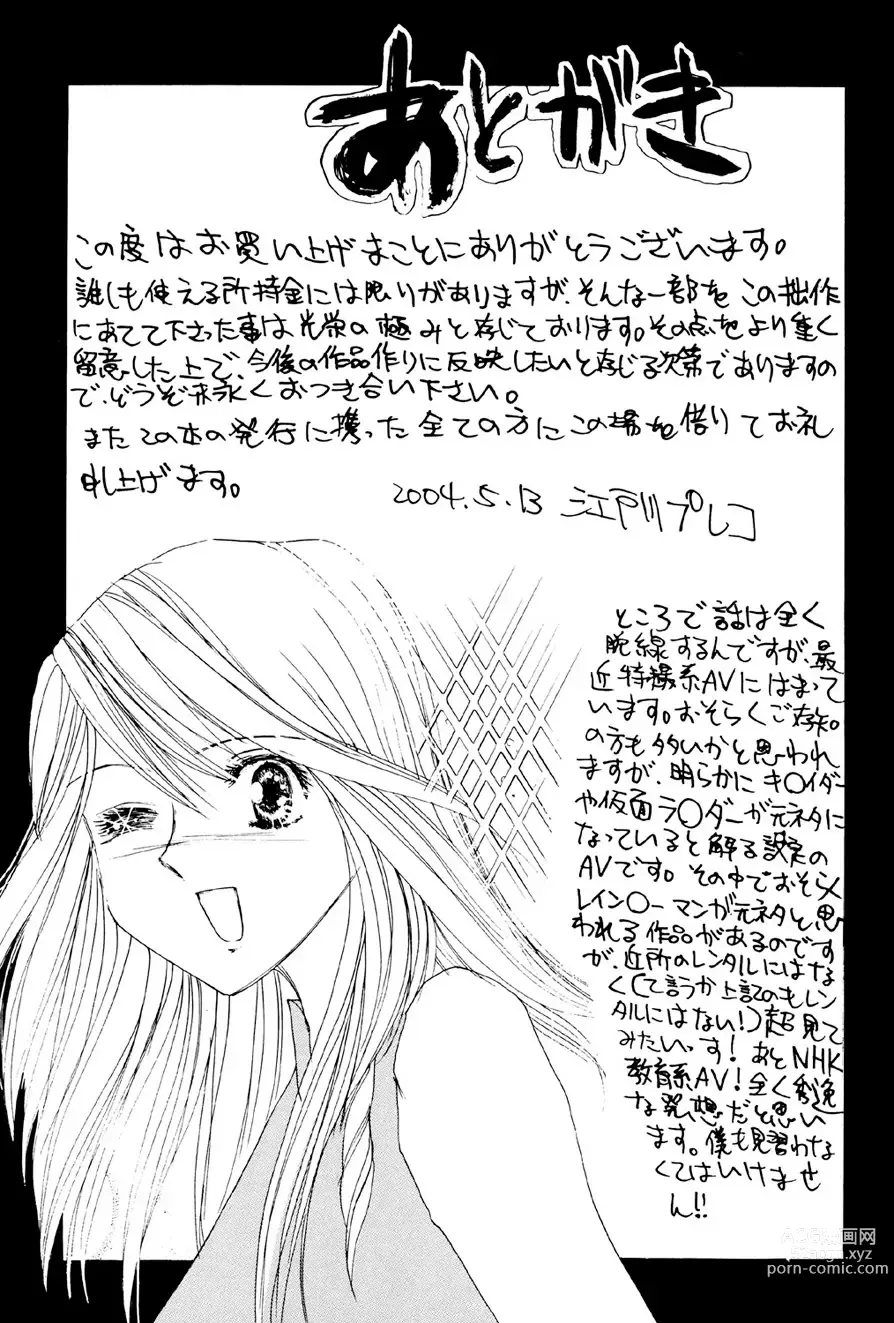 あとがき
この度はお買い上げまことにありがとうございます。
誰しも使える所持金には限りがありますが、そんな一部をこの拙作
にあてて下さった事は光栄の極みと存じております。その点をより重く
留意した上で、今後の作品作りに反映したいと存じる次第でありますの
で、どうぞ末永くおつき合い下さい。
またこの本の発行に携った全ての方にこの場を借りてお礼
申し上げます。
2004.5.13 江戸川プレコ
ところで話は全く
脱線するんですが、最
近特撮系AVにはまって
います。おそらくご存知
の方も多いかと思われ
ますが、明らかにキ○イダー
や仮面ラ○ダーが元ネタに
なっていると解る設定の
AVです。その中でおそらく
レイン○ーマンが元ネタと思
われる作品があるのです
が、近所のレンタルにはな
く(て言うか上記のもレン
タルにはない!)超見て
みたいっす!あとNHK
教育系AV!全く秀逸
な発想だと思い
ます。僕も見習わな
くてはいけませ
ん!!
ACG漫画网
acgzga.xyz
porn-comic.com